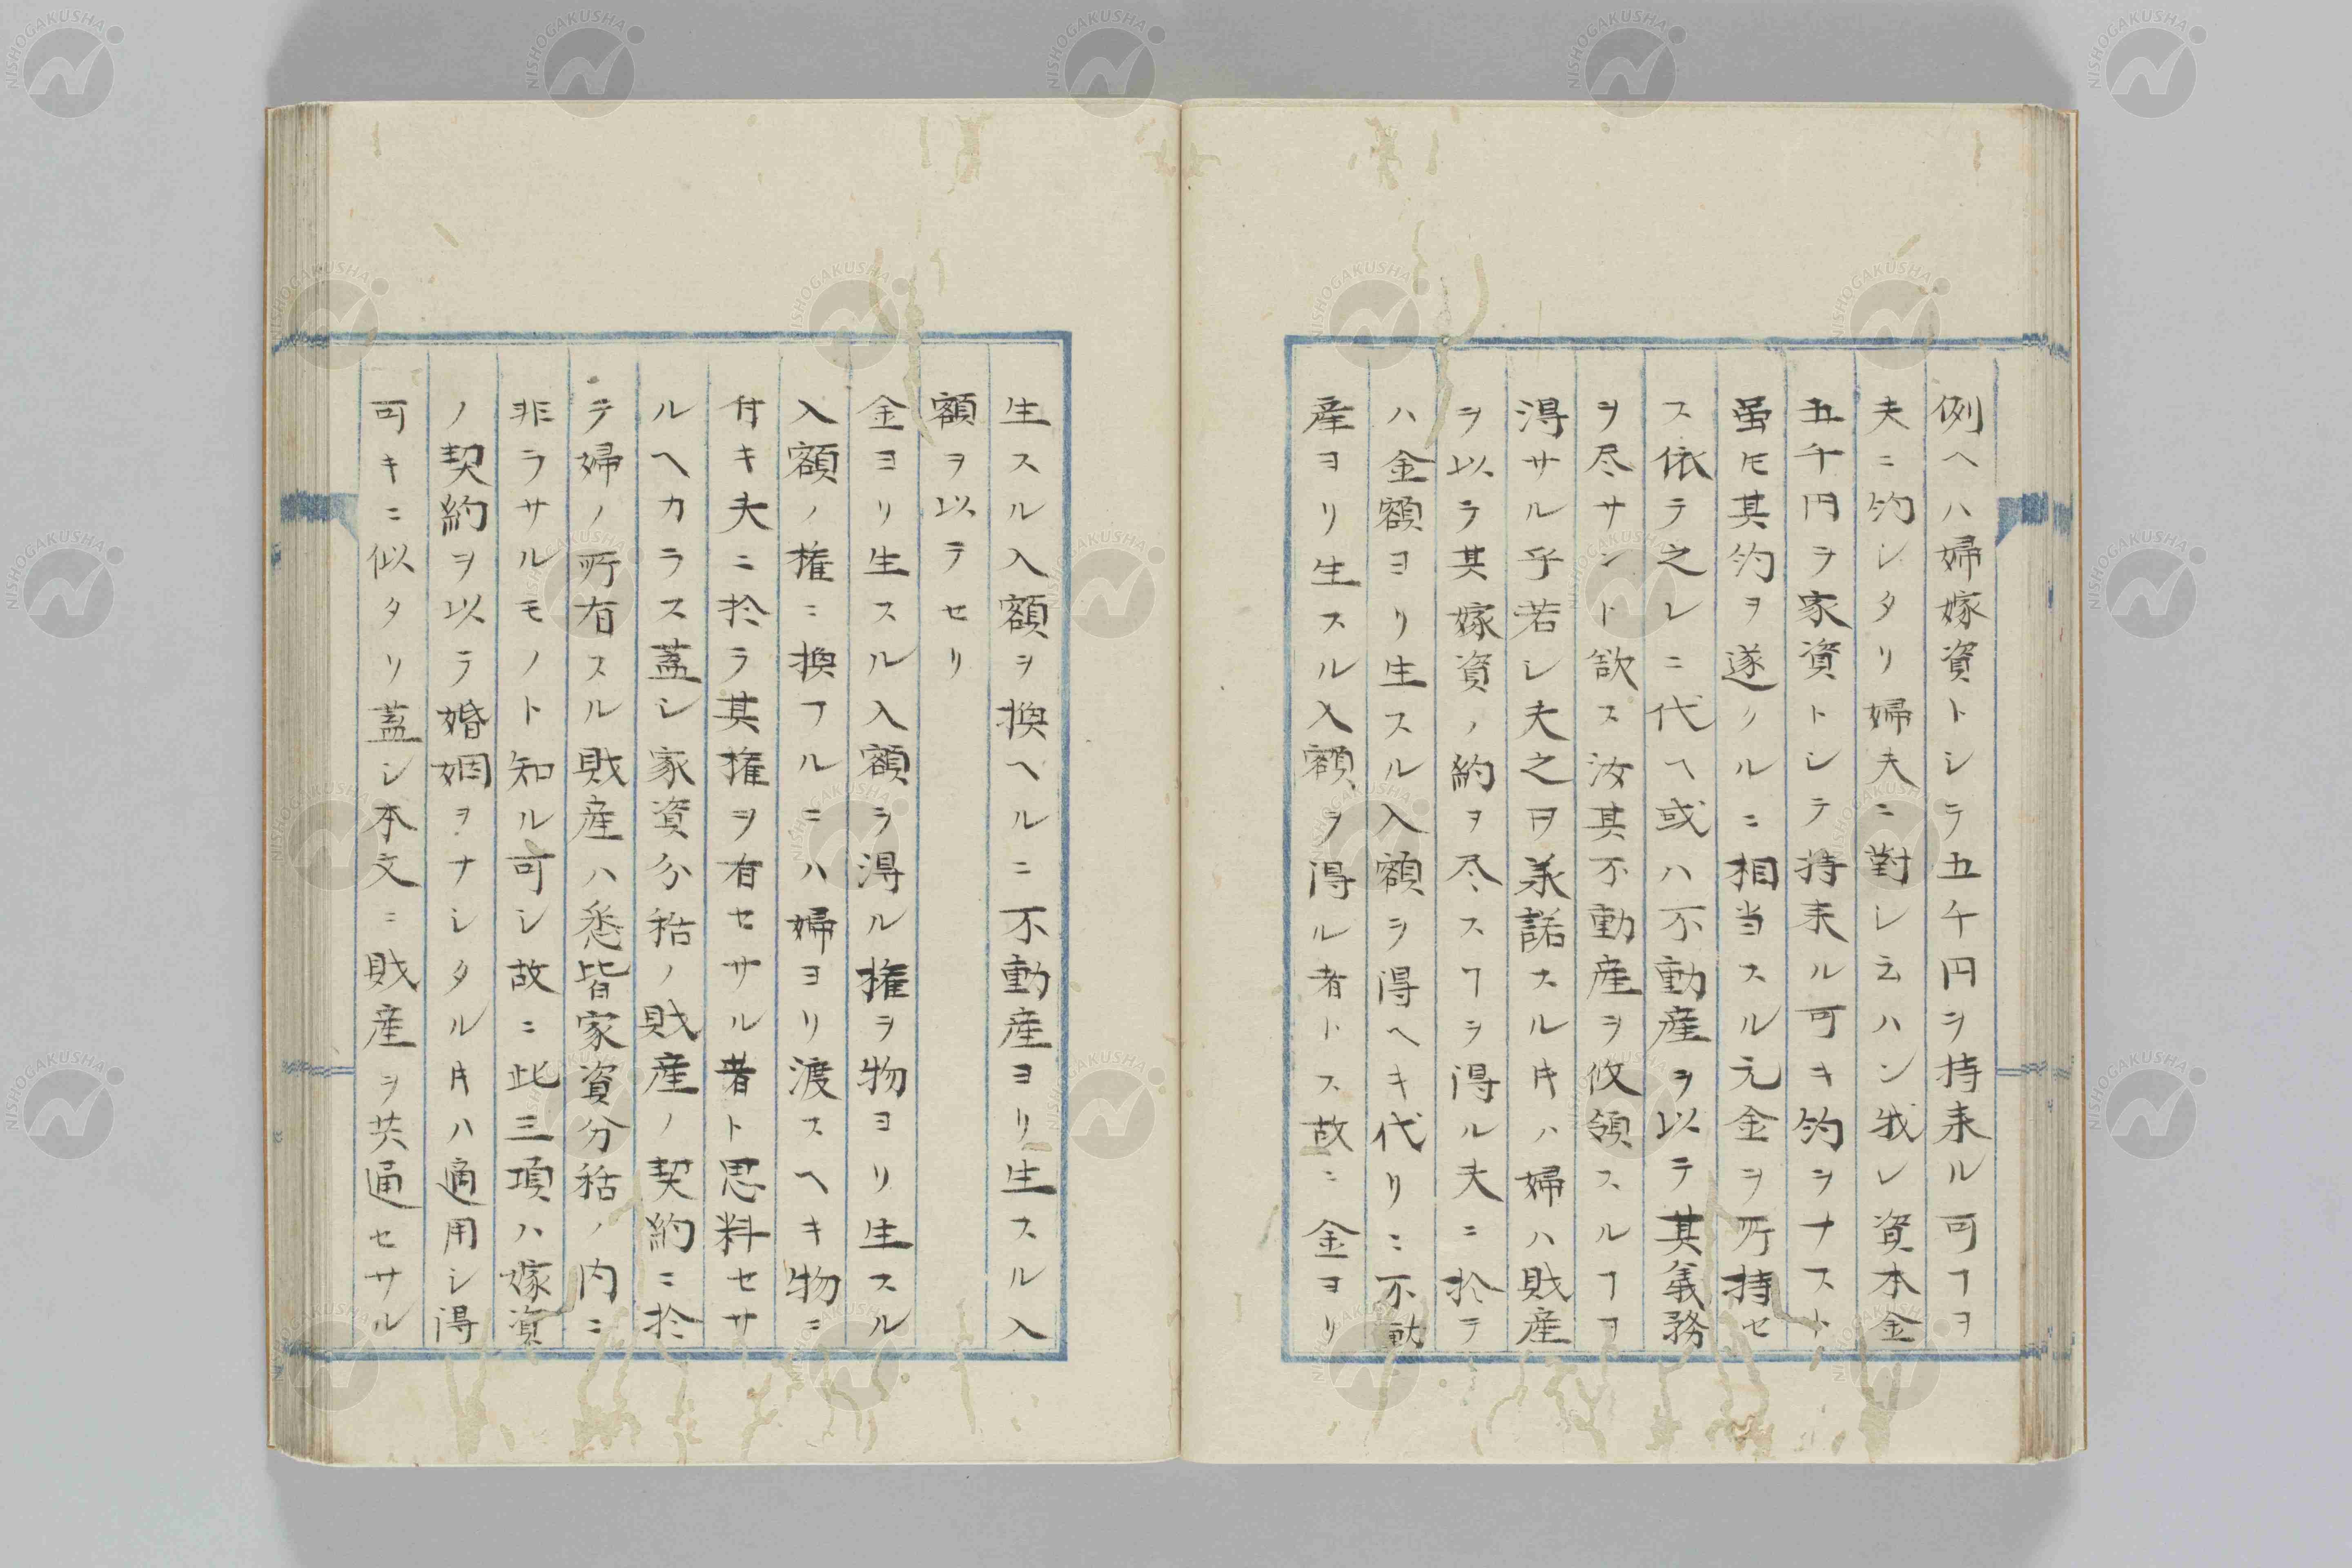 例ヘハ婦嫁資トシテ五千円ヲ持来ル可フヲ
夫ニ約シタリ婦夫ニ對シ云ハン我レ資本金
五千円ヲ家資トシテ持来ル可キ約ヲナスト
虽𪜈其約ヲ遂クルニ相当スル元金ヲ所持セ
ス依テ之レニ代ヘ或ハ不動産ヲ以テ其義務
ヲ尽サント欲ス汝其不動産ヲ收領スルヿヲ
得サル乎若シ夫之ヲ承諾スル𪜈ハ婦ハ財産
ヲ以テ其嫁資ノ約ヲ尽スヿヲ得ル夫ニ於テ
ハ金額ヨリ生スル入額ヲ得ヘキ代リニ不動
産ヨリ生スル入額ヲ得ル者トス故ニ金ヨリ
生スル入額ヲ換ヘルニ不動産ヨリ生スル入
額ヲ以テセリ
金ヨリ生スル入額ヲ得ル権ヲ物ヨリ生スル
入額ノ権ニ換フルニハ婦ヨリ渡スヘキ物ニ
付キ夫ニ於テ其権ヲ有セサル者ト思料セサ
ルヘカラス蓋シ家資分括ノ財産ノ契約ニ於
テ婦ノ所有スル財産ハ悉皆家資分括ノ内ニ
非ラサルモノト知ル可シ故ニ此三項ハ嫁資
ノ契約ヲ以テ婚姻ヲナシタル𪜈ハ適用シ得
可キニ似タリ蓋シ本文ニ財産ヲ共通セサル
NISHOGAKUSHA